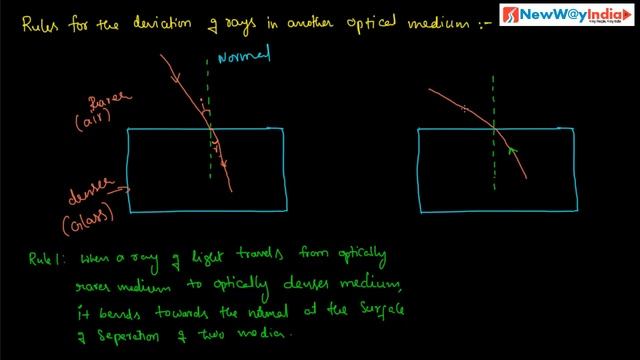 Rules for the deviation of rays in another optical medium :-
NewW@yIndia
Normal
Rarer
(air)
i
r
denser
(Glass)
Rule 1: When a ray of light travels from optically
rarer medium to optically denser medium,
it bends towards the normal at the surface
of seperation of two media.